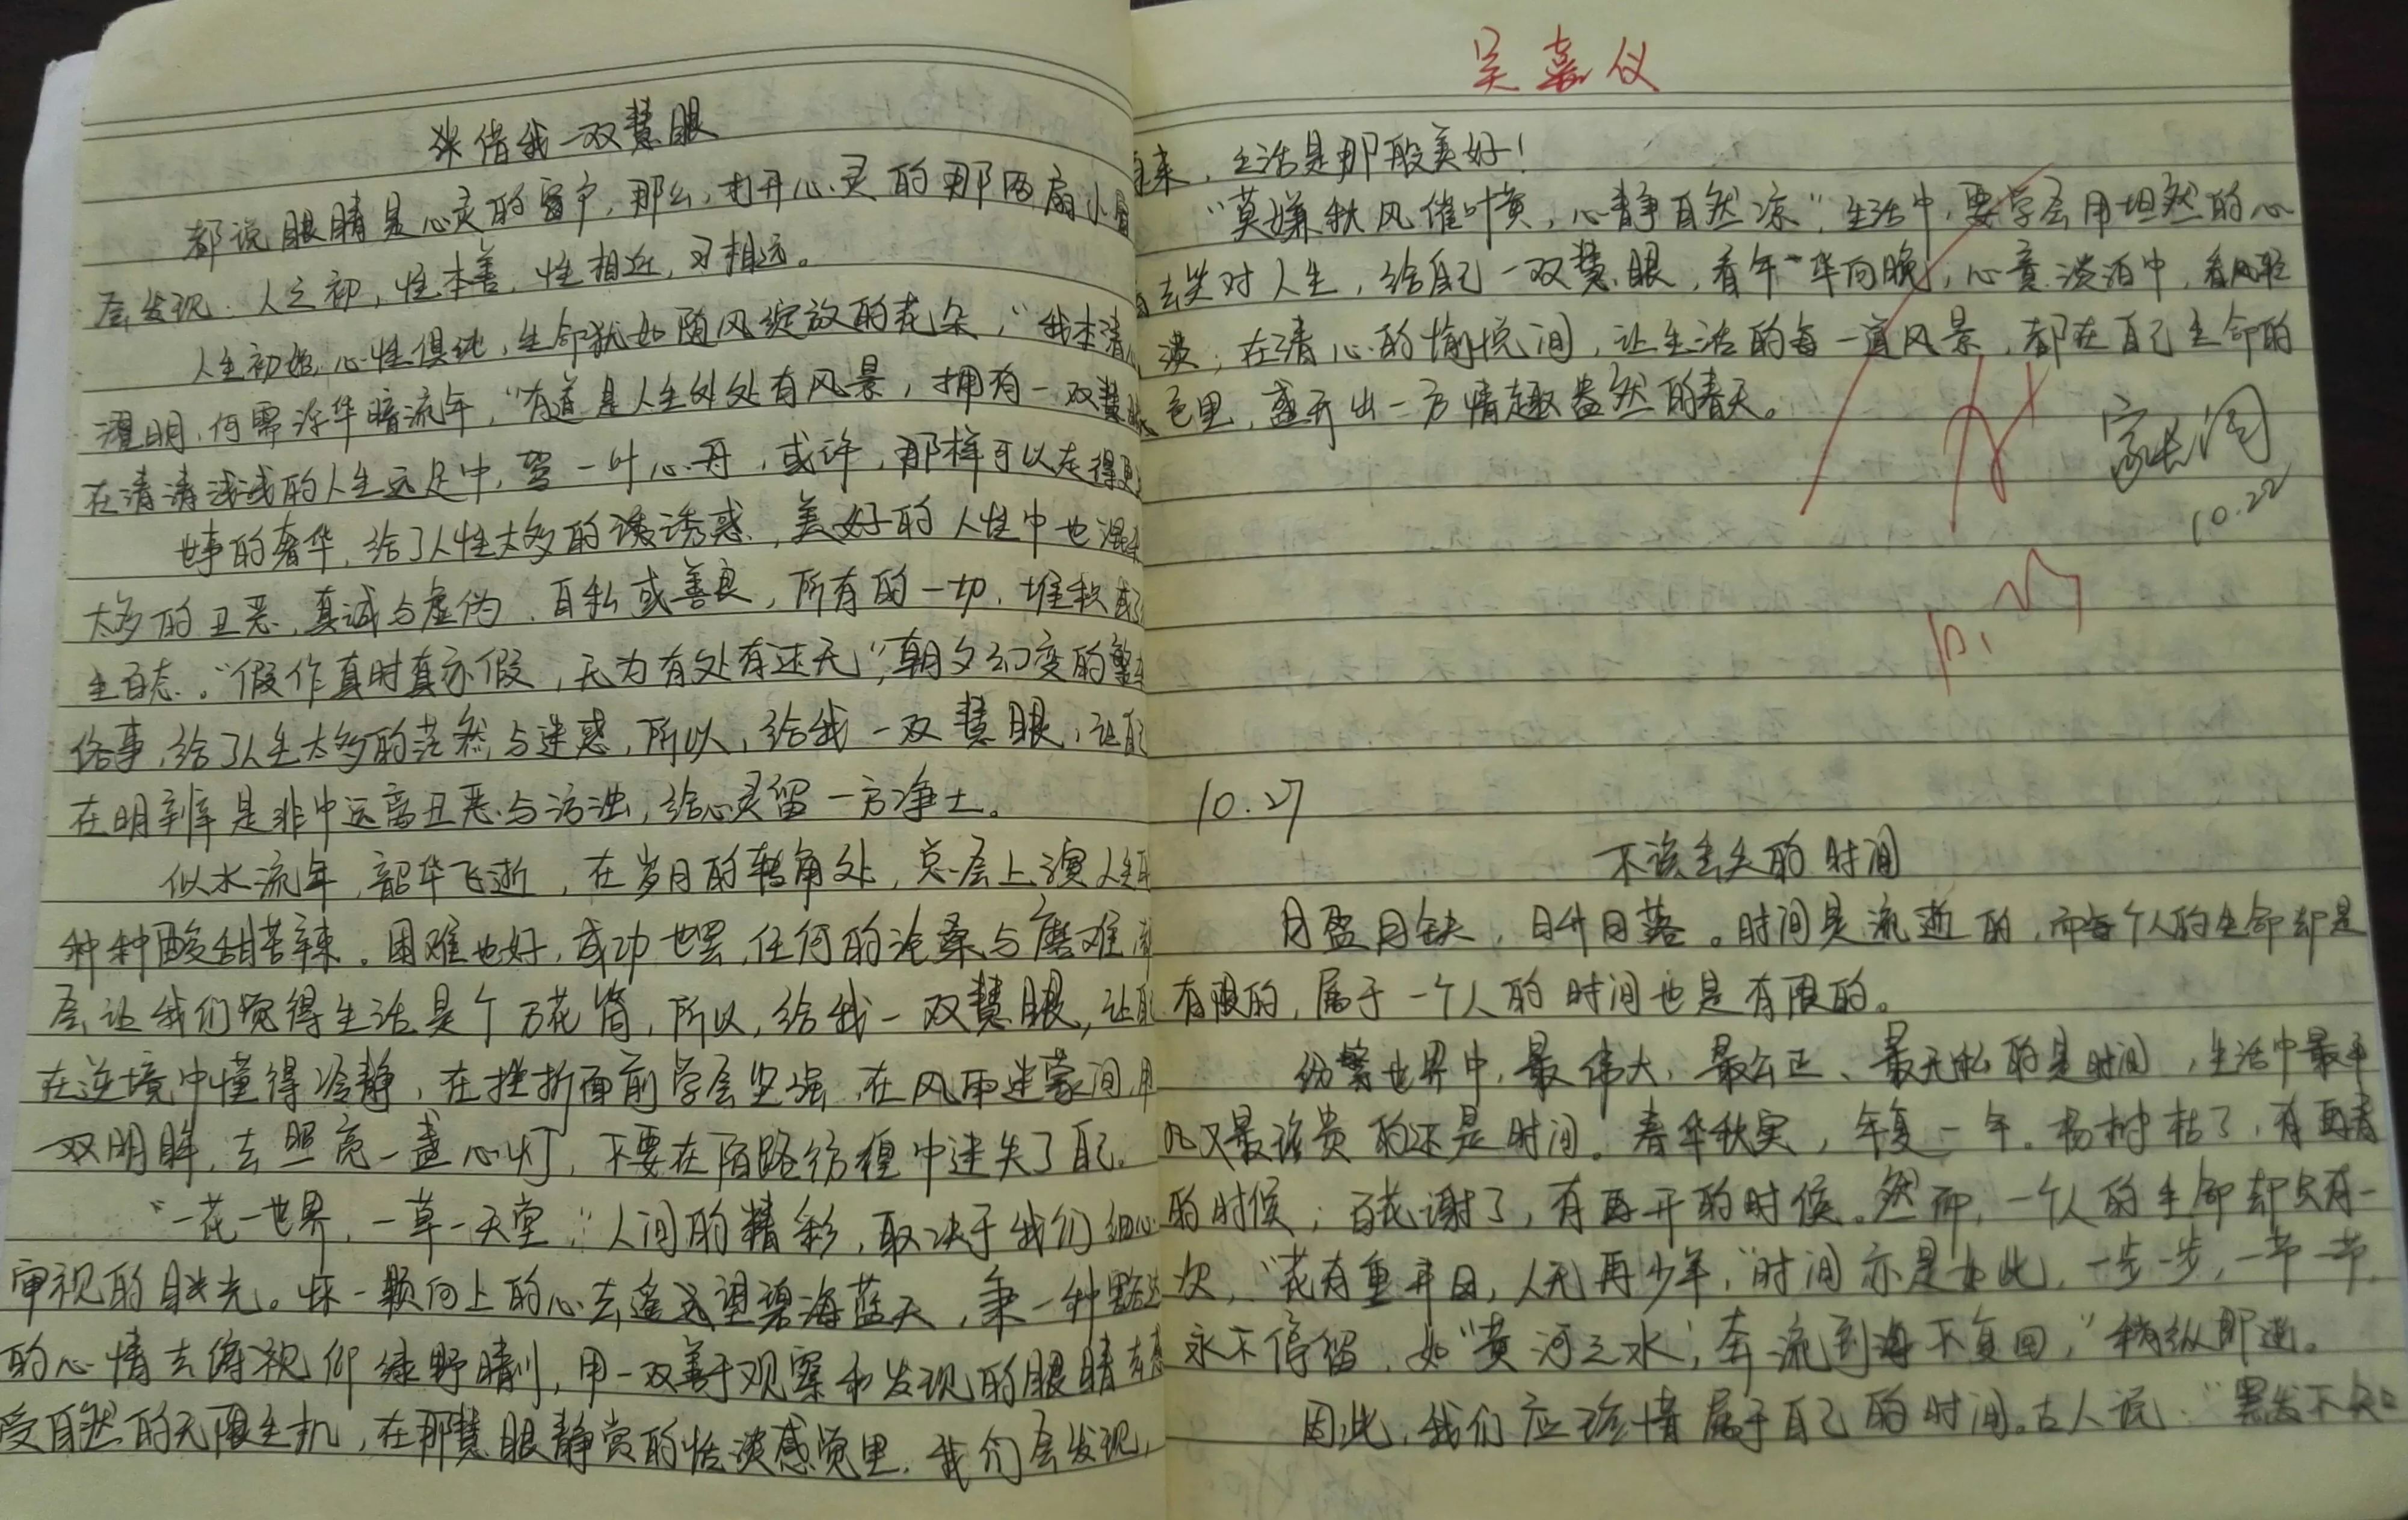 借我一双慧眼
都说眼睛是心灵的窗户,那么,打开心灵的那两扇小窗
会发现:人之初,性本善,性相近,习相远。
人生初始,心性俱纯,生命犹如随风绽放的花朵,“我本清心
濯明,何需浮华暗流年,”有道是人生处处有风景,拥有一双慧眼
在清清浅浅的人生远足中,驾一叶心舟,或许,那样可以走得更
世事的奢华,给了人性太多的诱惑,美好的人性中也混杂
太多的丑恶,真诚与虚伪、自私或善良,所有的一切,堆积成了
生百态。“假作真时真亦假,无为有处有还无”,朝夕幻变的繁杂
俗事,给了人生太多的茫然与迷惑,所以,给我一双慧眼,让自己
在明辨是非中远离丑恶与污浊,给心灵留一方净土。
似水流年,韶华飞逝,在岁月的转角处,总会上演人生
种种酸甜苦辣。困难也好,成功也罢,任何的沧桑与磨难,
会让我们觉得生活是个万花筒,所以,给我一双慧眼,让自己
在逆境中懂得冷静,在挫折面前学会坚强,在风雨迷蒙间,用
一双明眸,去照亮一盏心灯,不要在陌路彷徨中迷失了自己。
“一花一世界,一草一天堂,”人间的精彩,取决于我们细心
审视的目光。怀一颗向上的心去遥望碧海蓝天,秉一种豁达
的心情去俯视仰绿野晴川,用一双善于观察和发现的眼睛去感
受自然的无限生机,在那慧眼静赏的恬淡感觉里,我们会发现,
吴嘉仪
来,生活是那般美好!
“莫嫌秋风催叶黄,心静自然凉”,生活中,要学会用坦然的心
去笑对人生,给自己一双慧眼,看年华向晚,心意淡泊中,看风轻
淡,在清心的愉悦间,让生活的每一道风景,都在自己生命的
色里,盛开出一方情趣盎然的春天。
家长阅
10.22
10.27
不该丢失的时间
月盈月缺,日升日落。时间是流逝的,而每个人的生命却是
有限的,属于一个人的时间也是有限的。
纷繁世界中,最伟大、最公正、最无私的是时间,生活中最平
凡又最珍贵的还是时间。春华秋实,年复一年。杨树枯了,有再青
的时候;百花谢了,有再开的时候。然而,一个人的生命却只有一
次,“花有重开日,人无再少年,”时间亦是如此,一步一步,一节一节,
永不停留,如“黄河之水,奔流到海不复回,”稍纵即逝。
因此,我们应珍惜属于自己的时间。古人说:“黑发不知